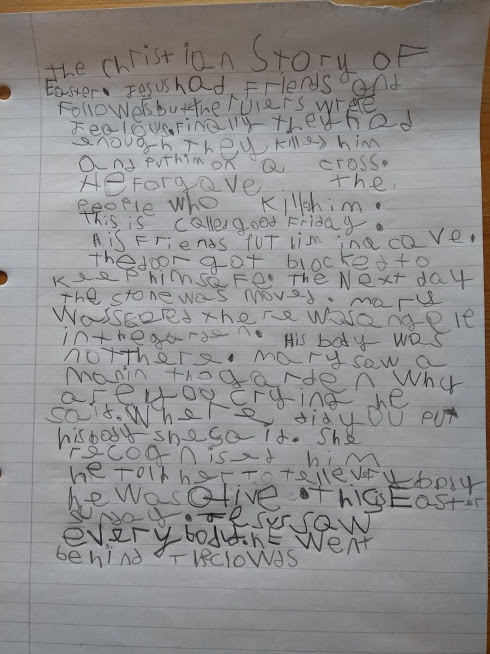 the christian Story OF
Easter. Jesus had Friends and
Followers but the rulers wrere
Jealous. Finally they had
enough they killed him
and put him on a cross.
He forgave the
people who killd him.
This is called good Friday.
His Friends put him in a cave.
the door got blocked to
keep him safe. the Next day
the stone was moved. mary
was scared there was angele
in the garden. His body was
not there. mary saw a
man in the garden Why
are you crying he
said. Where did you put
his body she said. She
recognised him
he told her to tell every body
he was alive. this Easter
Sunday. Jesus saw
every body. he went
behind the clowds